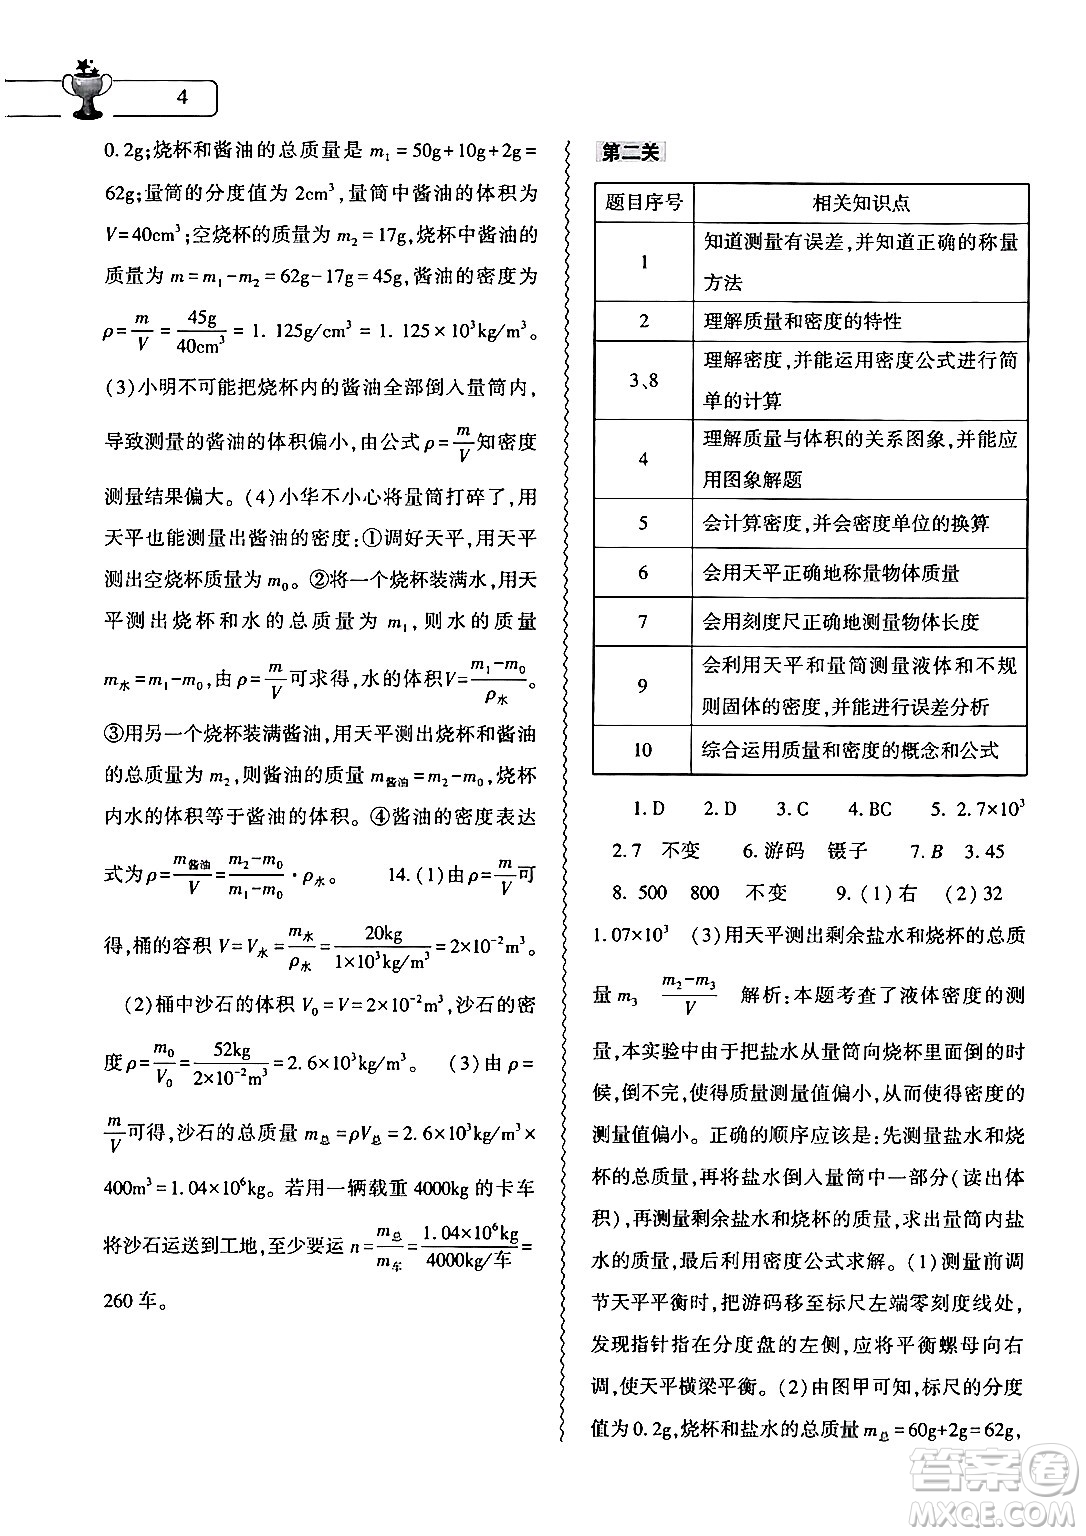 4
0.2g;烧杯和酱油的总质量是 m₁ = 50g+10g+2g=
62g;量筒的分度值为 2cm³,量筒中酱油的体积为
V=40cm³;空烧杯的质量为 m₂ =17g,烧杯中酱油的
质量为 m = m₁-m₂ = 62g-17g = 45g,酱油的密度为
ρ=m/V=45g/40cm³=1.125g/cm³=1.125×10³kg/m³。
(3)小明不可能把烧杯内的酱油全部倒入量筒内,
导致测量的酱油的体积偏小,由公式 ρ=m/V知密度
测量结果偏大。(4)小华不小心将量筒打碎了,用
天平也能测量出酱油的密度:①调好天平,用天平
测出空烧杯质量为 m₀。②将一个烧杯装满水,用天
平测出烧杯和水的总质量为 m₁,则水的质量
m水=m₁-m₀,由 ρ=m/V可求得,水的体积V=(m₁-m₀)/ρ水。
③用另一个烧杯装满酱油,用天平测出烧杯和酱油
的总质量为 m₂,则酱油的质量 m酱油=m₂-m₀,烧杯
内水的体积等于酱油的体积。④酱油的密度表达
式为ρ=m酱油/V=(m₂-m₀)/(m₁-m₀)·ρ水。 14.(1)由ρ=m/V可
得,桶的容积 V=V水=m水/ρ水=20kg/(1×10³kg/m³)=2×10⁻²m³。
(2)桶中沙石的体积 V₀=V=2×10⁻²m³,沙石的密
度ρ=m₀/V₀=52kg/(2×10⁻²m³)=2.6×10³kg/m³。 (3)由 ρ=
m/V可得,沙石的总质量 m总=ρV总=2.6×10³kg/m³×
400m³=1.04×10⁶kg。若用一辆载重 4000kg 的卡车
将沙石运送到工地,至少要运 n=m总/m车=1.04×10⁶kg/(4000kg/车)=
260 车。
第二关
题目序号 相关知识点
1 知道测量有误差,并知道正确的称量
方法
2 理解质量和密度的特性
3、8 理解密度,并能运用密度公式进行简
单的计算
4 理解质量与体积的关系图象,并能应
用图象解题
5 会计算密度,并会密度单位的换算
6 会用天平正确地称量物体质量
7 会用刻度尺正确地测量物体长度
9 会利用天平和量筒测量液体和不规
则固体的密度,并能进行误差分析
10 综合运用质量和密度的概念和公式
1. D 2. D 3. C 4. BC 5. 2.7×10³
2.7 不变 6. 游码 镊子 7. B 3.45
8. 500 800 不变 9. (1)右 (2)32
1.07×10³ (3)用天平测出剩余盐水和烧杯的总质
量 m₃ (m₂-m₃)/V 解析:本题考查了液体密度的测
量,本实验中由于把盐水从量筒向烧杯里面倒的时
候,倒不完,使得质量测量值偏小,从而使得密度的
测量值偏小。正确的顺序应该是:先测量盐水和烧
杯的总质量,再将盐水倒入量筒中一部分(读出体
积),再测量剩余盐水和烧杯的质量,求出量筒内盐
水的质量,最后利用密度公式求解。(1)测量前调
节天平平衡时,把游码移至标尺左端零刻度线处,
发现指针指在分度盘的左侧,应将平衡螺母向右
调,使天平横梁平衡。(2)由图甲可知,标尺的分度
值为 0.2g,烧杯和盐水的总质量 m总=60g+2g=62g,
答案圈
MXQE.COM